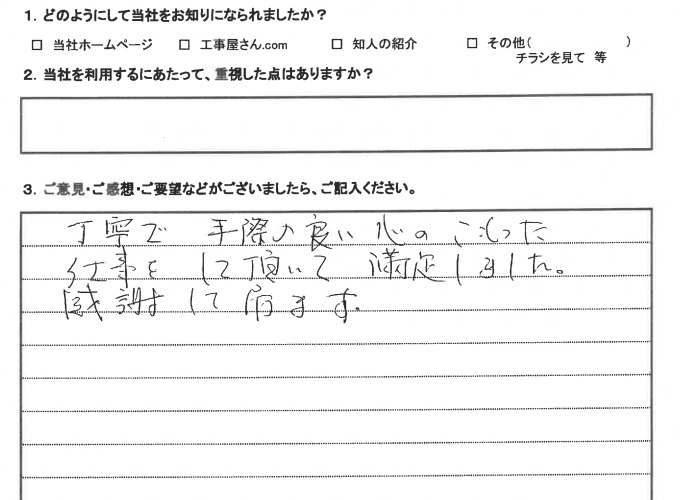 1. どのようにして当社をお知りになられましたか？
□ 当社ホームページ □ 工事屋さん.com □ 知人の紹介 □ その他( )
チラシを見て 等
2. 当社を利用するにあたって、重視した点はありますか？
3. ご意見・ご感想・ご要望などがございましたら、ご記入ください。
丁寧で 手際の良い 心のこもった
仕事を して頂いて 満足しました。
感謝して居ます.